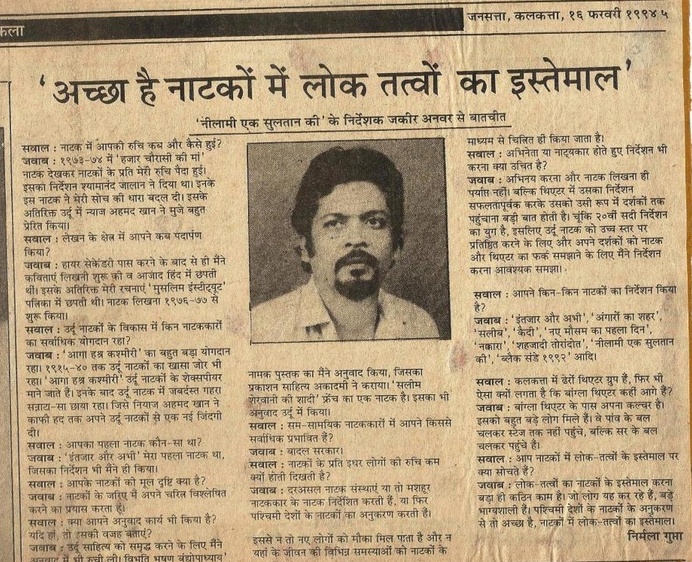 कला
जनसत्ता, कलकत्ता, १६ फरवरी १९९४ ५
'अच्छा है नाटकों में लोक तत्वों का इस्तेमाल'
'नीलामी एक सुलतान की' के निर्देशक जकीर अनवर से बातचीत
सवाल : नाटक में आपकी रुचि कब और कैसे हुई?
जवाब : १९७३-७४ में 'हजार चौरासी की मां'
नाटक देखकर नाटकों के प्रति मेरी रुचि पैदा हुई।
इसका निर्देशन श्यामानंद जालान ने दिया था। इनके
इस नाटक ने मेरी सोच की धारा बदल दी। इसके
अतिरिक्त उर्दू में न्याज अहमद खान ने मुजे बहुत
प्रेरित किया।
सवाल : लेखन के क्षेत्र में आपने कब पदार्पण
किया?
जवाब : हायर सेकेंडरी पास करने के बाद से ही मैंने
कविताएं लिखनी शुरू की व आजाद हिंद में छपती
थीं। इसके अतिरिक्त मेरी रचनाएं 'मुसलिम ईंस्टीट्यूट'
पत्रिका में छपती थी। नाटक लिखना १९७६-७७ से
शुरू किया।
सवाल : उर्दू नाटकों के विकास में किन नाटककारों
का सर्वाधिक योगदान रहा?
जवाब : 'आगा हश्र कश्मीरी' का बहुत बड़ा योगदान
रहा। १९१५-४० तक उर्दू नाटकों का खासा जोर भी
रहा। 'आगा हश्र कश्मीरी' उर्दू नाटकों के शेक्सपीयर
माने जाते हैं। इनके बाद उर्दू नाटक में जबर्दस्त गहरा
सन्नाटा-सा छाया रहा। जिसे नियाज अहमद खान ने
काफी हद तक अपने उर्दू नाटकों से एक नई जिंदगी
दी।
सवाल : आपका पहला नाटक कौन-सा था?
जवाब : 'इंतजार और अभी' मेरा पहला नाटक था,
जिसका निर्देशन भी मैंने ही किया।
सवाल : आपके नाटकों की मूल दृष्टि क्या है?
जवाब : नाटकों के जरिए में अपने चरित विश्लेषित
करने का प्रयास करता हूं।
सवाल : क्या आपने अनुवाद कार्य भी किया है?
यदि हां, तो इसकी वजह बताएं?
जवाब : उर्दू साहित्य को समृद्ध करने के लिए मैंने
अनुवाद में भी रुची ली। विभूति भूषण बंद्योपाध्याय
नामक पुस्तक का मैंने अनुवाद किया, जिसका
प्रकाशन साहित्य अकादमी ने कराया। 'सलीम
शेरवानी की शादी' फ्रेंच का एक नाटक है। इसका भी
अनुवाद उर्दू में किया।
सवाल : सम-सामयिक नाटककारों में आपने किससे
सर्वाधिक प्रभावित हैं?
जवाब : बादल सरकार।
सवाल : नाटकों के प्रति इधर लोगों की रुचि कम
क्यों दिखती है?
जवाब : दरअसल नाटक संस्थाएं या तो मशहूर
नाटककार के नाटक निर्देशित करती हैं, या फिर
पश्चिमी देशों के नाटकों का अनुकरण करती हैं।
इससे न तो नए लोगों को मौका मिल पाता है और न
यहां के जीवन की विभिन्न समस्याओं को नाटकों के
माध्यम से चित्रित ही किया जाता है।
सवाल : अभिनेता या नाट्यकार होते हुए निर्देशन भी
करना क्या उचित है?
जवाब : अभिनय करना और नाटक लिखना ही
पर्याप्त नहीं। बल्कि थिएटर में उसका निर्देशन
सफलतापूर्वक करके उसको उसी रूप में दर्शकों तक
पहुंचाना बड़ी बात होती है। चूंकि २०वीं सदी निर्देशन
का युग है, इसलिए उर्दू नाटक को उच्च स्तर पर
प्रतिष्ठित करने के लिए और अपने दर्शकों को नाटक
और थिएटर का फर्क समझाने के लिए मैंने निर्देशन
करना आवश्यक समझा।
सवाल : आपने किन-किन नाटकों का निर्देशन किया
है?
जवाब : 'इंतजार और अभी', 'अंगारों का शहर',
'सलीब', 'कैदी', 'नए मौसम का पहला दिन',
'नकारा', 'शहजादी तोरांदोत', 'नीलामी एक सुलतान
की', 'ब्लैक संडे १९९२' आदि।
सवाल : कलकत्ता में ढेरों थिएटर ग्रुप हैं, फिर भी
ऐसा क्यों लगता है कि बांग्ला थिएटर कहीं आगे हैं?
जवाब : बांग्ला थिएटर के पास अपना कल्चर है।
इसको बहुत बड़े लोग मिले हैं। वे पांव के बल
चलकर स्टेज तक नहीं पहुंचे, बल्कि सर के बल
चलकर पहुंचे हैं।
सवाल : आप नाटकों में लोक-तत्वों के इस्तेमाल पर
क्या सोचते हैं?
जवाब : लोक-तत्वों का नाटकों के इस्तेमाल करना
बड़ा ही कठिन काम है। जो लोग यह कर रहे हैं, बड़े
भाग्यशाली हैं। पश्चिमी देशों के नाटकों के अनुकरण
से तो अच्छा है, नाटकों में लोक-तत्वों का इस्तेमाल।
निर्मला गुप्ता